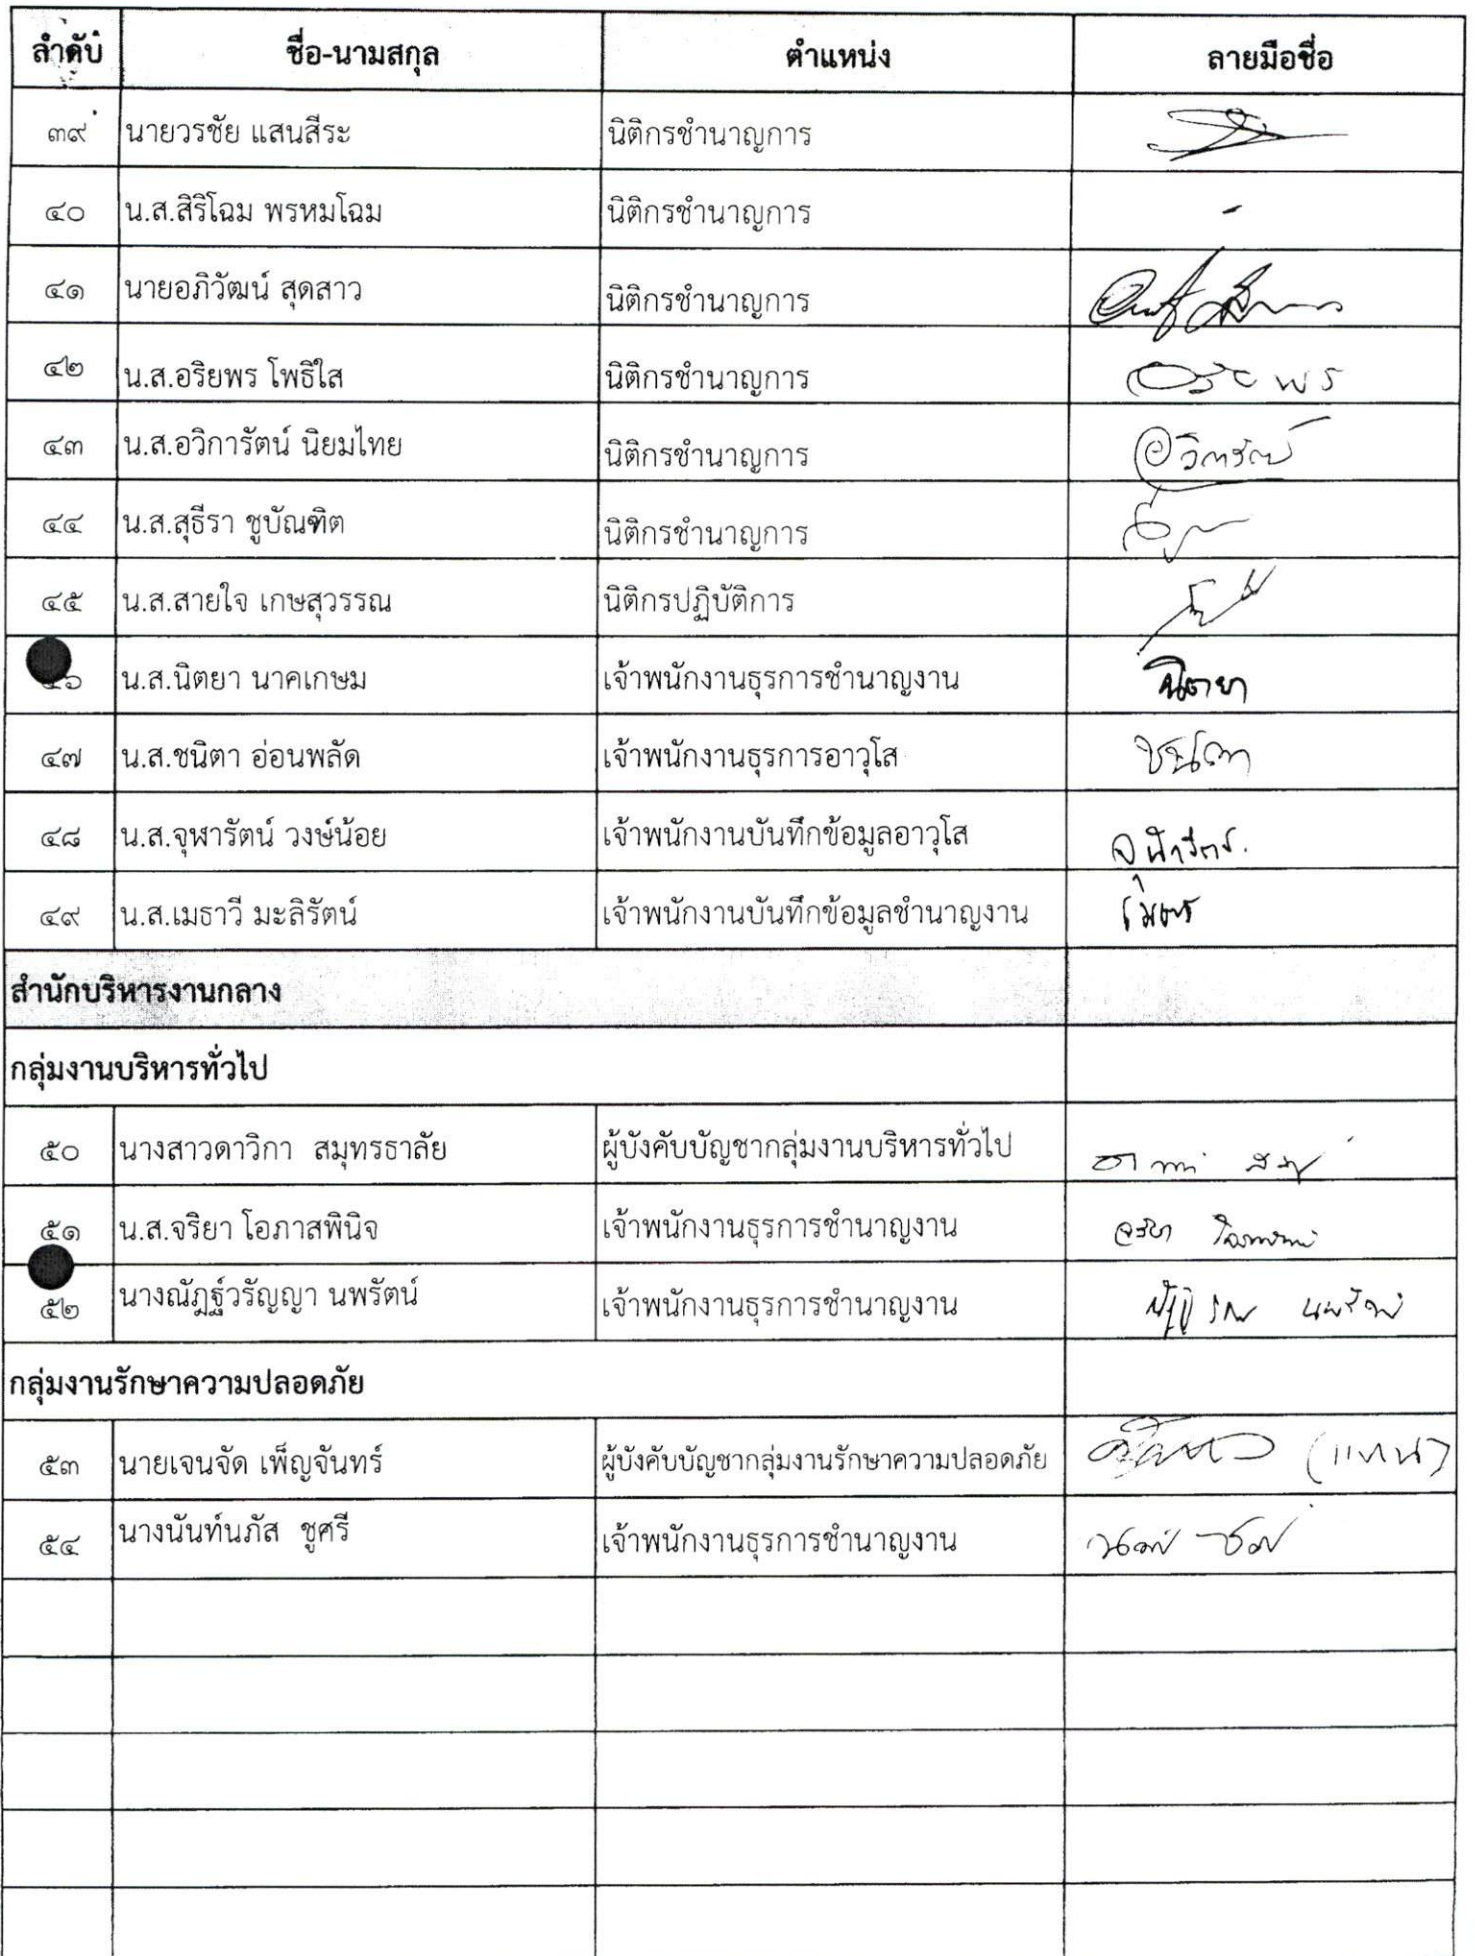 ลำดับ ชื่อ-นามสกุล ตำแหน่ง ลายมือชื่อ
๓๙ นายวรชัย แสนสีระ นิติกรชำนาญการ
๔๐ น.ส.สิริโฉม พรหมโฉม นิติกรชำนาญการ -
๔๑ นายอภิวัฒน์ สุดสาว นิติกรชำนาญการ
๔๒ น.ส.อริยพร โพธิใส นิติกรชำนาญการ
๔๓ น.ส.อวิการัตน์ นิยมไทย นิติกรชำนาญการ อวิการัตน์
๔๔ น.ส.สุธีรา ชูบัณฑิต นิติกรชำนาญการ
๔๕ น.ส.สายใจ เกษสุวรรณ นิติกรปฏิบัติการ
๔๖ น.ส.นิตยา นาคเกษม เจ้าพนักงานธุรการชำนาญงาน นิตยา
๔๗ น.ส.ชนิตา อ่อนพลัด เจ้าพนักงานธุรการอาวุโส ชนิตา
๔๘ น.ส.จุฬารัตน์ วงษ์น้อย เจ้าพนักงานบันทึกข้อมูลอาวุโส จุฬารัตน์
๔๙ น.ส.เมธาวี มะลิรัตน์ เจ้าพนักงานบันทึกข้อมูลชำนาญงาน
สำนักบริหารงานกลาง
กลุ่มงานบริหารทั่วไป
๕๐ นางสาวดาวิกา สมุทรธาลัย ผู้บังคับบัญชากลุ่มงานบริหารทั่วไป
๕๑ น.ส.จริยา โอภาสพินิจ เจ้าพนักงานธุรการชำนาญงาน จริยา โอภาสพินิจ
๕๒ นางณัฏฐ์วรัญญา นพรัตน์ เจ้าพนักงานธุรการชำนาญงาน นพรัตน์
กลุ่มงานรักษาความปลอดภัย
๕๓ นายเจนจัด เพ็ญจันทร์ ผู้บังคับบัญชากลุ่มงานรักษาความปลอดภัย (แทน)
๕๔ นางนันท์นภัส ชูศรี เจ้าพนักงานธุรการชำนาญงาน